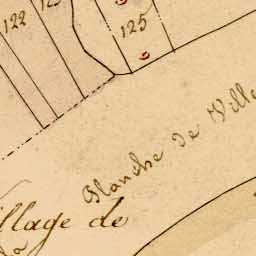 122
125
Planche de Ville
illage de